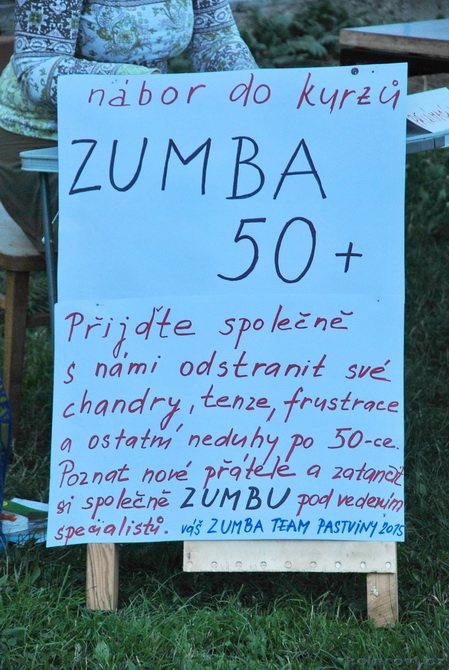 nábor do kurzů
ZUMBA
50+
Přijďte společně
s námi odstranit své
chandry, tenze, frustrace
a ostatní neduhy po 50-ce.
Poznat nové přátele a zatančit
si společně ZUMBU pod vedením
specialistů. váš ZUMBA TEAM PASTVINY 2015